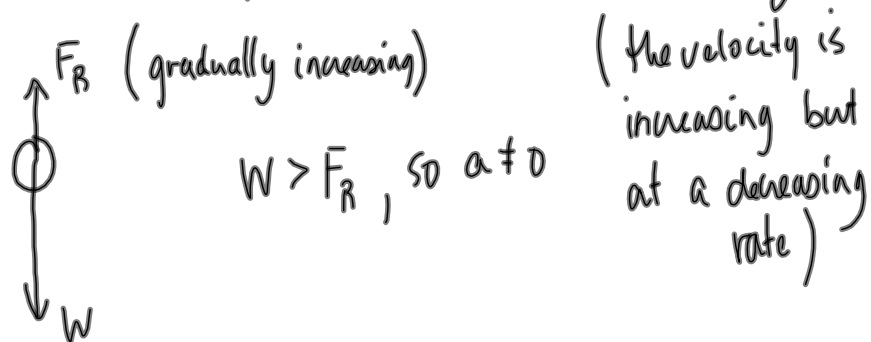 F_R (gradually increasing)
W > F_R, so a ≠ 0
W
(the velocity is
increasing but
at a decreasing
rate)